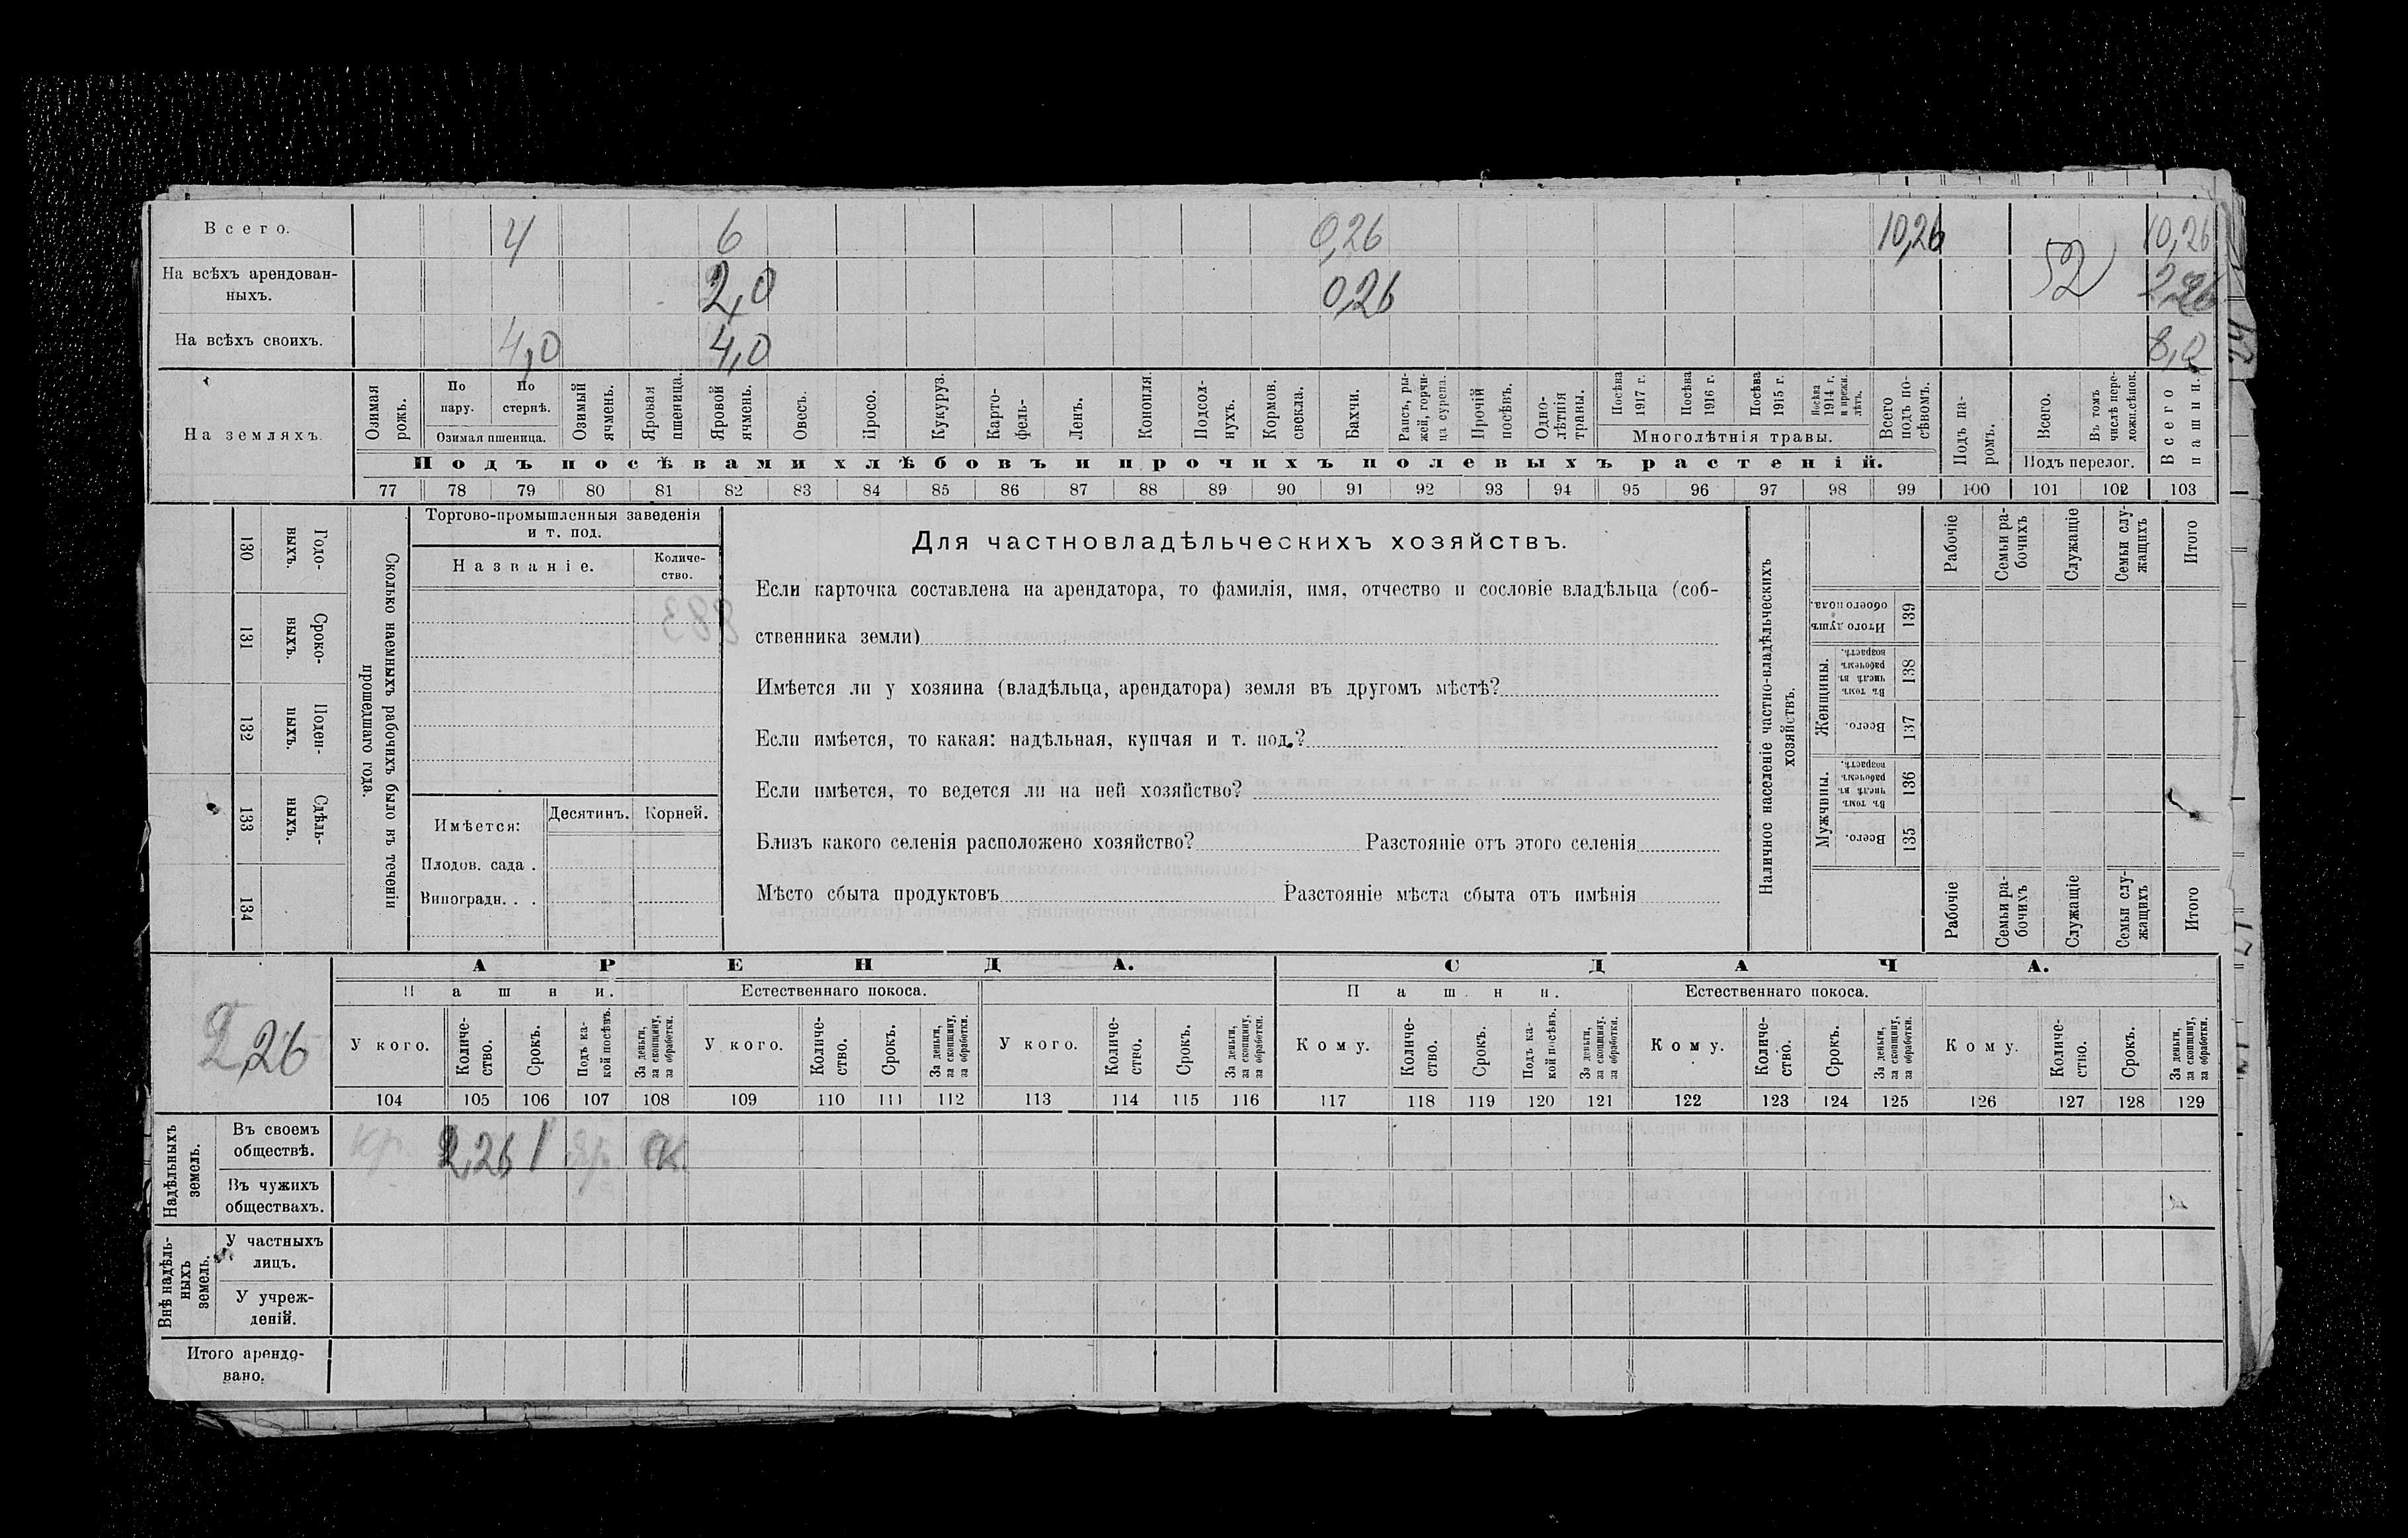 Всего. 4 6 0,26 10,26 10,26
На всѣхъ арендован-
ныхъ. 2,0 0,26 52 2,26
На всѣхъ своихъ. 4,0 4,0 8,0
На земляхъ.
Озимая рожь.
По пару.
По стернѣ.
Озимая пшеница.
Озимый ячмень.
Яровая пшеница.
Яровой ячмень.
Овесъ.
Просо.
Кукуруз.
Карто-
фель-
Ленъ.
Конопля.
Подсол-
нухъ.
Кормов.
свекла.
Бахчи.
Рапсъ, ры-
жей, горчи-
ца сурепа.
Прочій
посѣвъ.
Одно-
лѣтнія
травы.
Посѣва
1917 г.
Посѣва
1916 г.
Посѣва
1915 г.
Посѣва
1914 г.
и прежн.
лѣтъ.
Многолѣтнія травы.
Всего
подъ по-
сѣвомъ.
Подъ па-
ромъ.
Всего.
Въ томъ
числѣ пере-
лож.сѣнок.
Подъ перелог.
Всего
пашни.
Подъ посѣвами хлѣбовъ и прочихъ полевыхъ растеній.
77 78 79 80 81 82 83 84 85 86 87 88 89 90 91 92 93 94 95 96 97 98 99 100 101 102 103
130 Годо-
выхъ.
131 Сроко-
выхъ.
132 Поден-
ныхъ.
133 Сдѣль-
ныхъ.
134
Сколько наемныхъ рабочихъ было въ теченіи
прошедшаго года.
Торгово-промышленныя заведенія
и т. под.
Названіе.
Количе-
ство.
883
Имѣется: Десятинъ. Корней.
Плодов. сада .
Виноградн. . .
Для частновладѣльческихъ хозяйствъ.
Если карточка составлена на арендатора, то фамилія, имя, отчество и сословіе владѣльца (соб-
ственника земли)
Имѣется ли у хозяина (владѣльца, арендатора) земля въ другомъ мѣстѣ?
Если имѣется, то какая: надѣльная, купчая и т. под.?
Если имѣется, то ведется ли на ней хозяйство?
Близъ какого селенія расположено хозяйство? Разстояніе отъ этого селенія
Мѣсто сбыта продуктовъ Разстояніе мѣста сбыта отъ имѣнія
Наличное населеніе частно-владѣльческихъ
хозяйствъ.
Рабочіе
Семьи ра-
бочихъ
Служащіе
Семьи слу-
жащихъ
Итого
Итого душъ
обоего пола.
139
Женщины.
Въ томъ
числѣ въ
рабочемъ
возрастѣ.
138
Всего.
137
Мужчины.
Въ томъ
числѣ въ
рабочемъ
возрастѣ.
136
Всего.
135
Рабочіе
Семьи ра-
бочихъ
Служащіе
Семьи слу-
жащихъ
Итого
2,26
АРЕНДА. СДАЧА.
Пашни. Естественнаго покоса. Пашни. Естественнаго покоса.
У кого.
Количе-
ство.
Срокъ.
Подъ ка-
кой посѣвъ.
За деньги,
за скопщину,
за обработки.
У кого.
Количе-
ство.
Срокъ.
За деньги,
за скопщину,
за обработки.
У кого.
Количе-
ство.
Срокъ.
За деньги,
за скопщину,
за обработки.
Кому.
Количе-
ство.
Срокъ.
Подъ ка-
кой посѣвъ.
За деньги,
за скопщину,
за обработки.
Кому.
Количе-
ство.
Срокъ.
За деньги,
за скопщину,
за обработки.
Кому.
Количе-
ство.
Срокъ.
За деньги,
за скопщину,
за обработки.
104 105 106 107 108 109 110 111 112 113 114 115 116 117 118 119 120 121 122 123 124 125 126 127 128 129
Надѣльныхъ
земель.
Въ своемъ
обществѣ. кр. 2,26 1 яр. ск.
Въ чужихъ
обществахъ.
Внѣ надѣль-
ныхъ
земель.
У частныхъ
лицъ.
У учреж-
деній.
Итого арендо-
вано.